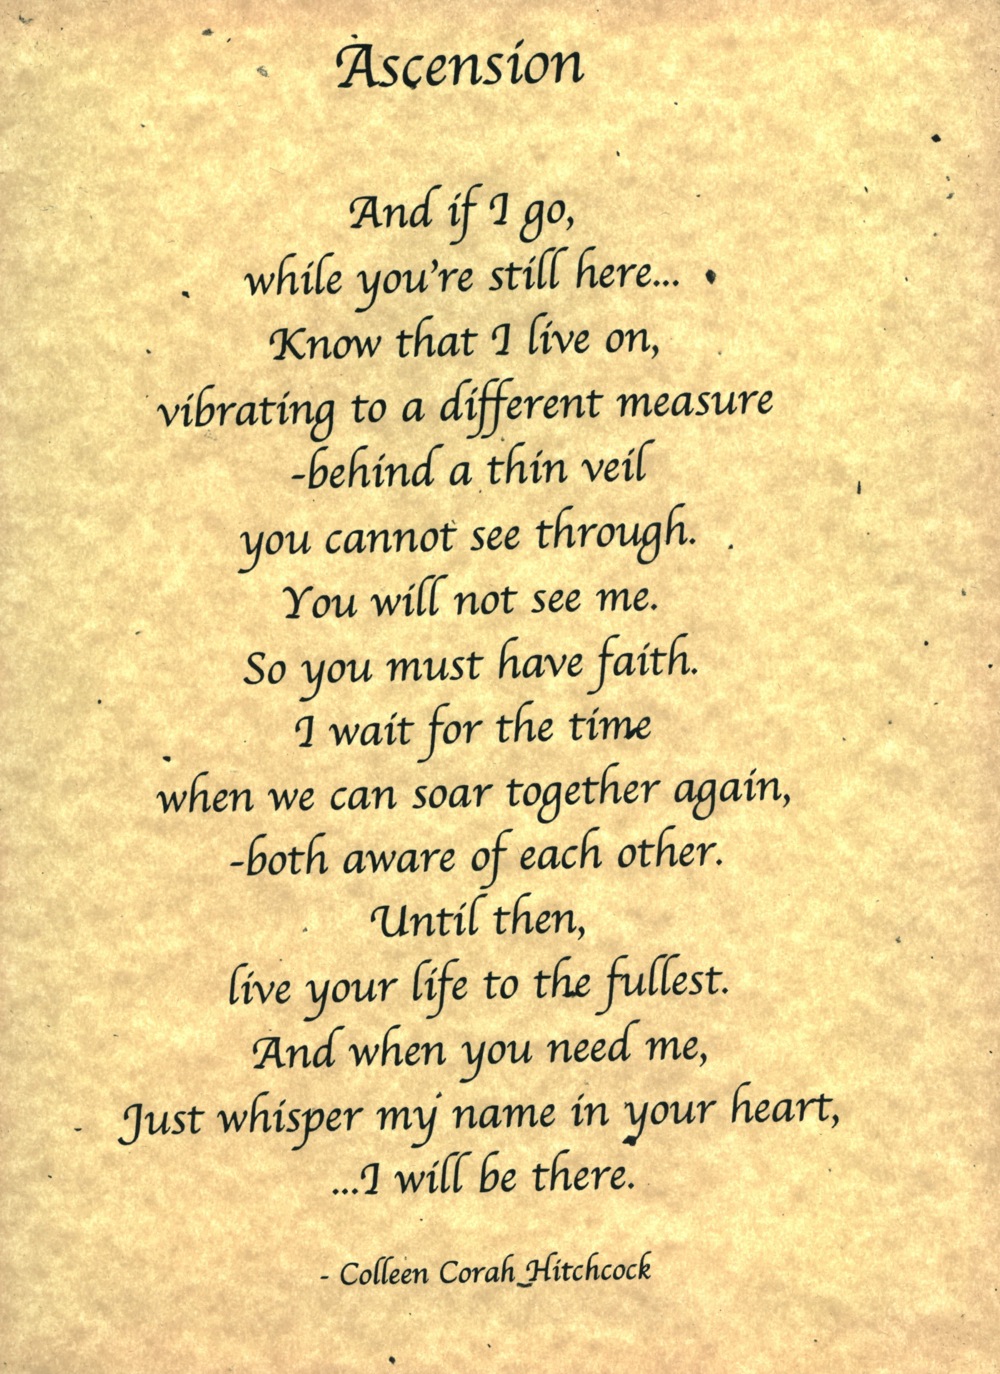 Ascension
And if I go,
while you're still here...
Know that I live on,
vibrating to a different measure
-behind a thin veil
you cannot see through.
You will not see me.
So you must have faith.
I wait for the time
when we can soar together again,
-both aware of each other.
Until then,
live your life to the fullest.
And when you need me,
Just whisper my name in your heart,
...I will be there.
- Colleen Corah Hitchcock